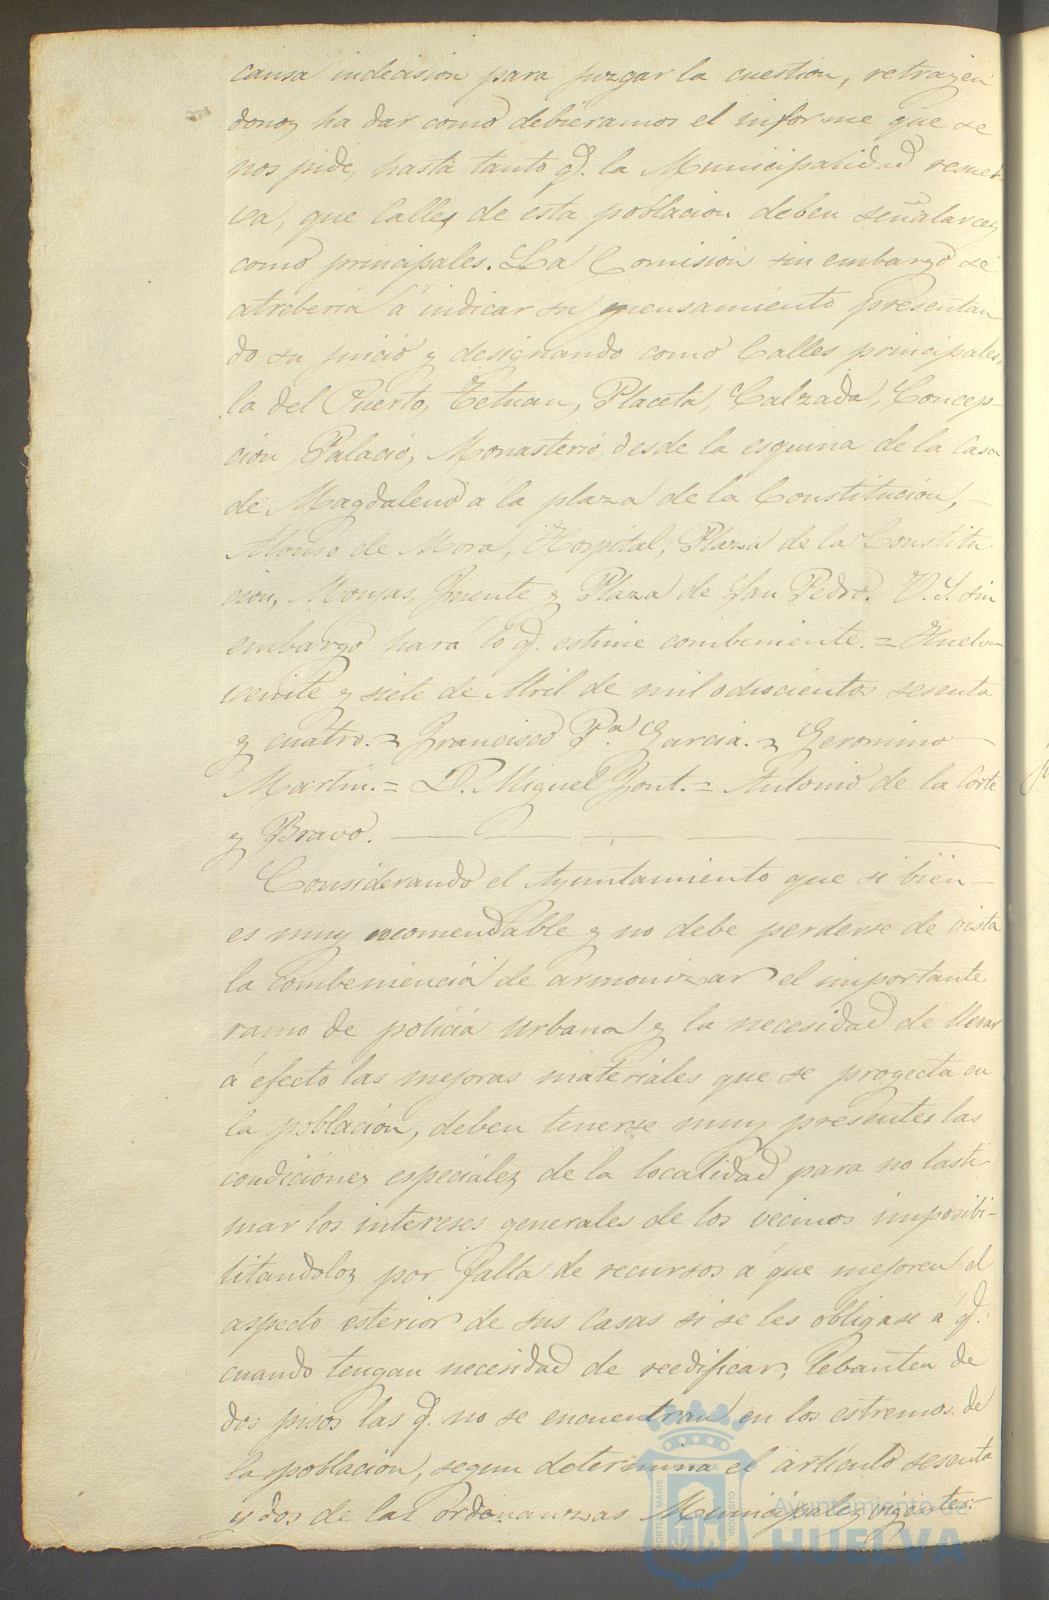 causa indecision para juzgar la cuestion, retrayen
donos ha dar como debieramos el informe que se
nos pide, hasta tanto q.e la Municipalidad resuel
va, que Calles de esta poblacion deben señalarces
como principales. La Comision sin embargo se
atreberia á indicar su pensamiento presentan
do su juicio y designando como Calles principales,
la del Puerto, Tetuan, Placeta, Calzada, Concep-
cion Palacio, Monasterio, desde la esquina de la Casa
de Magdaleno á la plaza de la Constitucion,
Alonso de Mora, Hospital, Plaza de la Constitu
cion, Monjas, Fuente y Plaza de San Pedro. V.S. sin
embargo hará lo q.e estime combeniente. = Huelva
veinte y siete de Abril de mil ochocientos sesenta
y cuatro. = Francisco P.a Garcia. = Geronimo
Martin. = P. Miguel Font. = Antonio de la Corte
y Bravo.
Considerando el Ayuntamiento que si bien
es muy recomendable y no debe perderse de vista
la combeniencia de armonizar el importante
ramo de policia urbana y la necesidad de llevar
á efecto las mejoras materiales que se proyecta en
la poblacion, deben tenerse muy presentes las
condiciones especiales de la localidad para no lasti-
mar los intereses generales de los vecinos imposibi-
litandolos por falta de recursos á que mejoren el
aspecto esterior de sus Casas si se les obligase á q.e
cuando tengan necesidad de reedificar, lebanten de
dos pisos las q.e no se encuentran en los estremos de
la poblacion, segun determina el articulo sesenta
y dos de las ordenanzas Municipales vigentes:
Ayuntamiento de
HUELVA